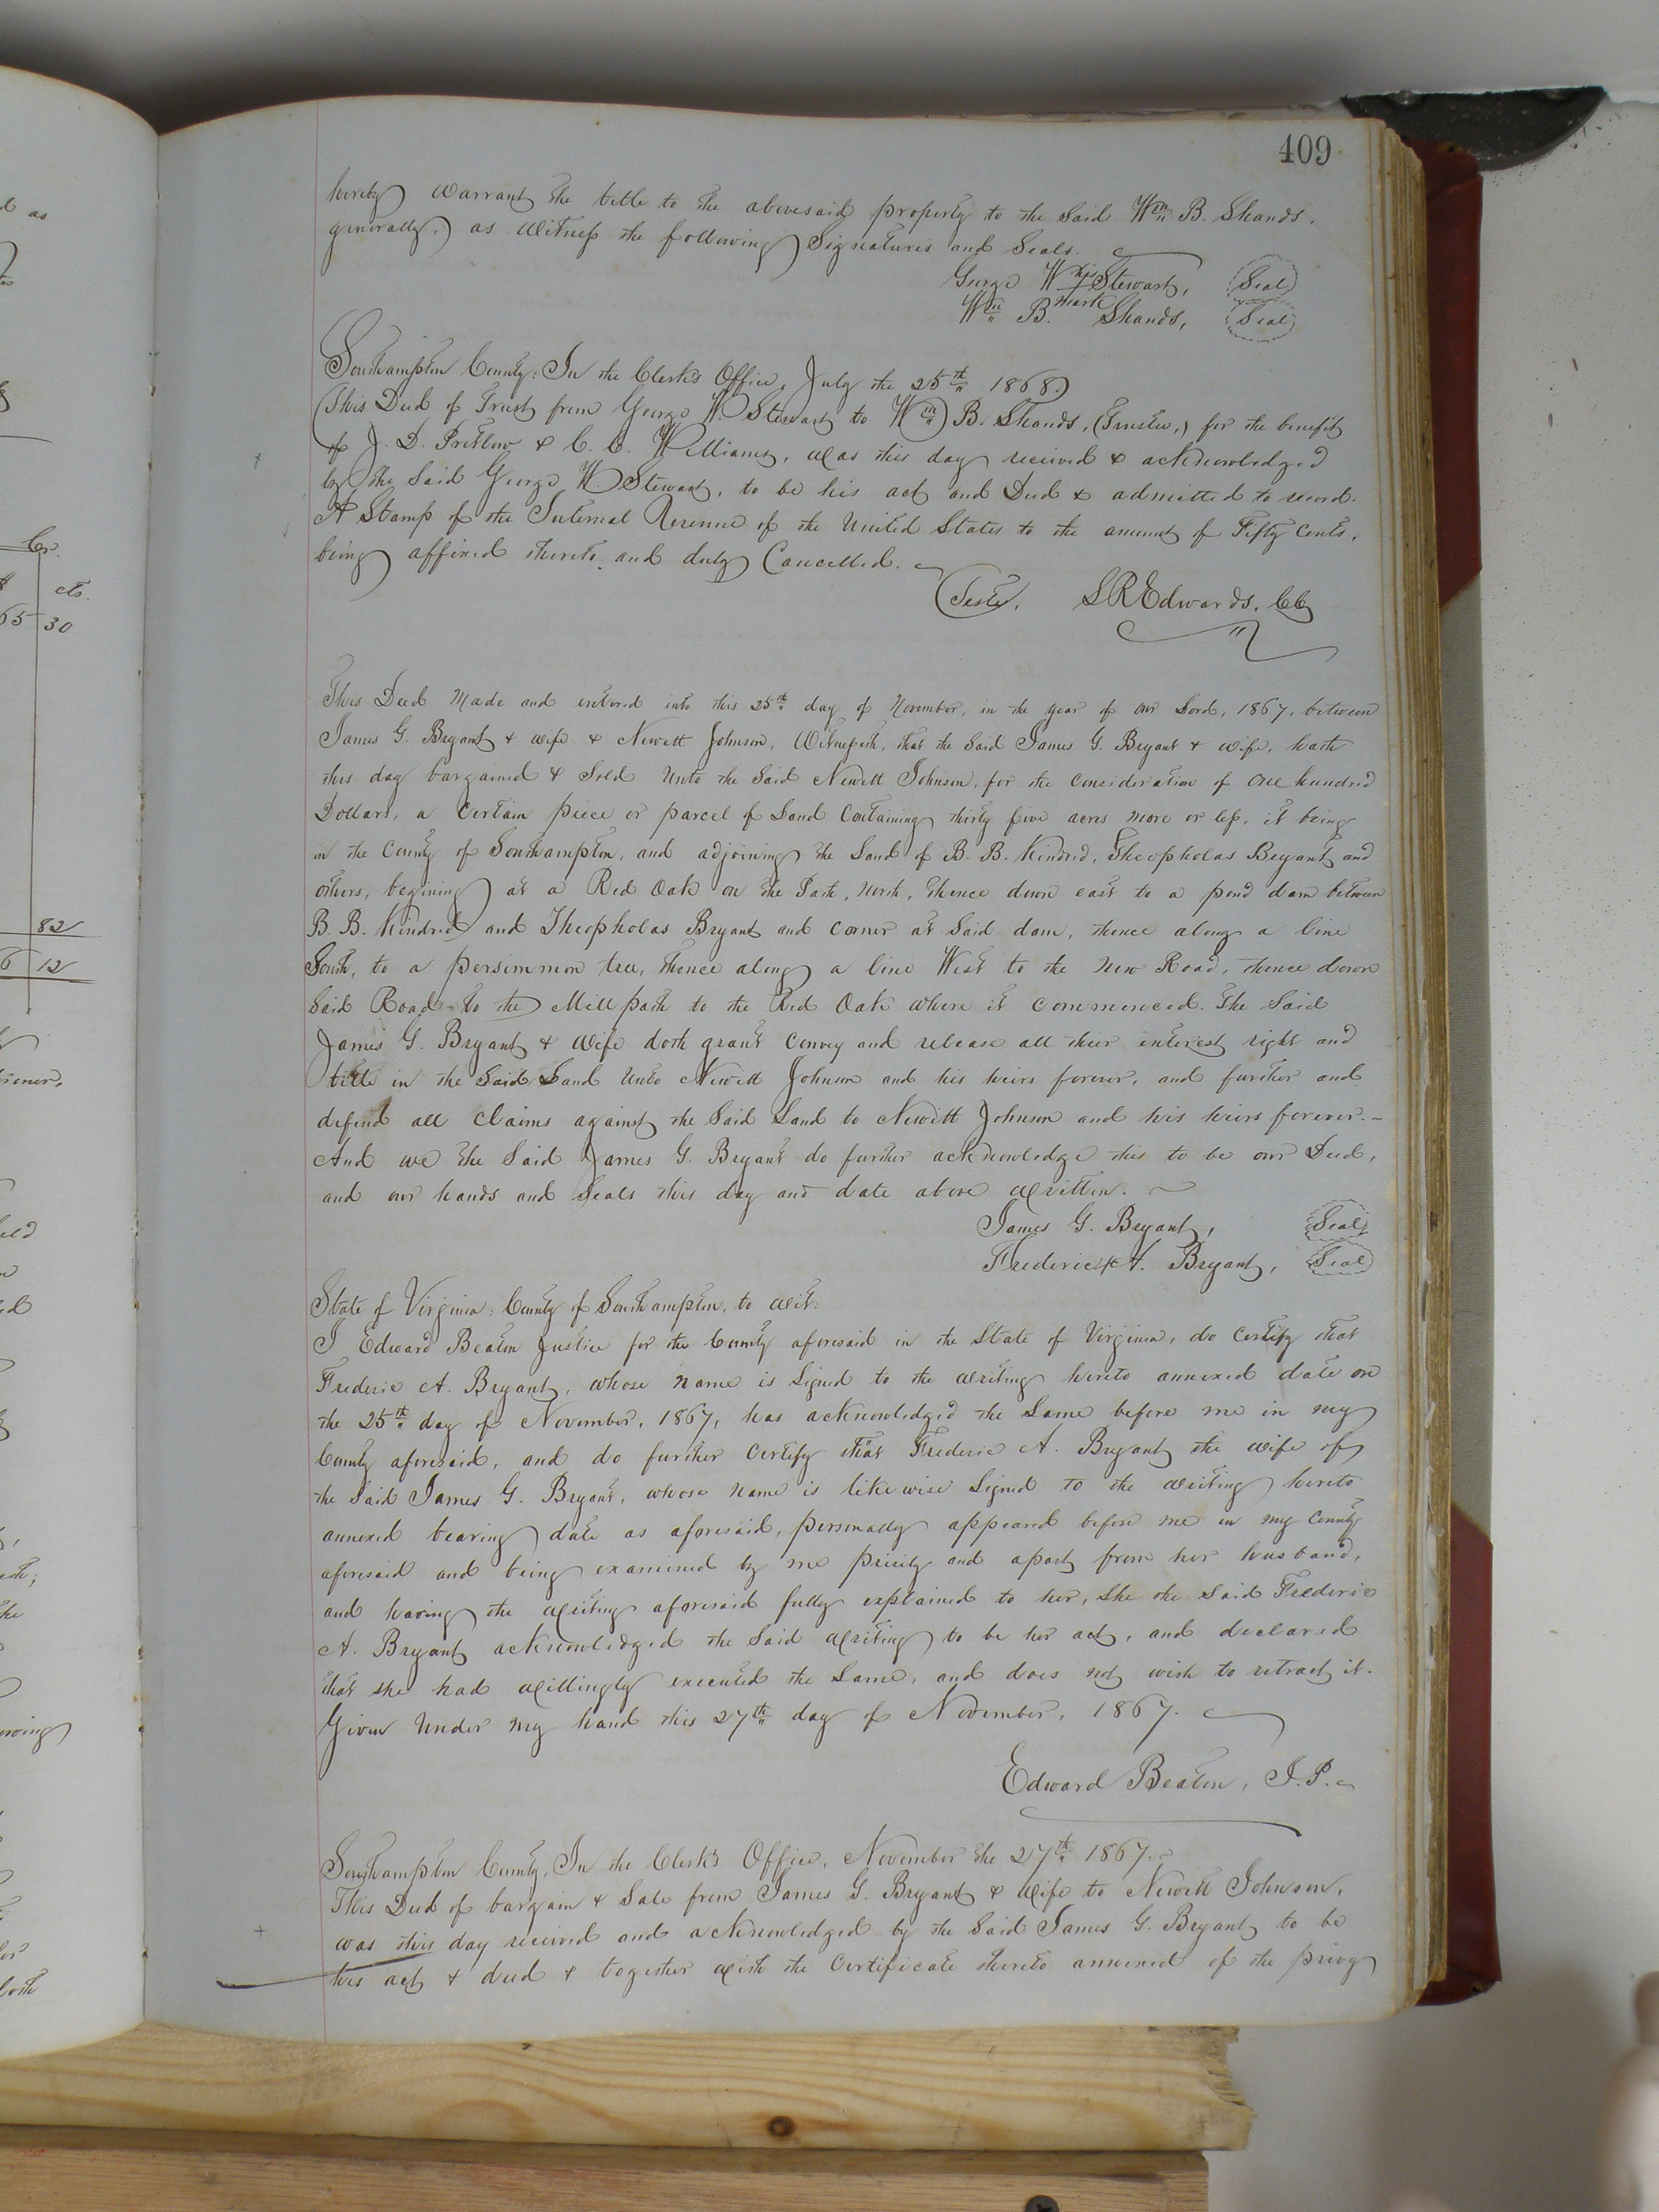 409
hereby warrant the title to the abovesaid property to the Said Wm B. Shands,
generally, as Witness the following Signatures and Seals.
George W his Stewart, Seal
mark
Wm B. Shands, Seal
Southampton County: In the Clerk's Office, July the 25th 1868.
This Deed of Trust from George W. Stewart to Wm B. Shands, (Trustee,) for the benefit
of J. D. Pretlow & C. C. Williams, was this day received & acknowledged
by the Said George W Stewart, to be his act and Deed & admitted to record.
A Stamp of the Internal Revenue of the United States to the amount of Fifty Cents,
being affixed thereto and duly Cancelled.
Teste, L R Edwards, CC
This Deed Made and entered into this 25th day of November, in the year of our Lord, 1867, between
James G. Bryant & wife & Newitt Johnson, Witnesseth, that the Said James G. Bryant & wife, hath
this day bargained & Sold Unto the Said Newitt Johnson, for the Consideration of One hundred
Dollars, a Certain piece or parcel of Land Containing thirty five acres more or less, it being
in the County of Southampton, and adjoining the Land of B. B. Kindred, Theopholas Bryant and
others, begining at a Red Oak on the Path, North, thence down east to a pond dam between
B. B. Kindred and Theopholas Bryant and corner at Said dam, thence along a line
South, to a persimmon tree, thence along a line West to the New Road, thence down
Said Road to the Mill path to the Red Oak where it commenced. The Said
James G. Bryant & Wife doth grant Convey and release all their interest right and
title in the Said Land Unto Newitt Johnson and his heirs forever, and further and
defend all Claims against the Said Land to Newitt Johnson and his heirs forever.
And we the Said James G. Bryant do further acknowledge this to be our Deed,
and our hands and Seals this day and date above written.
James G. Bryant, Seal
Frederick A. Bryant, Seal
State of Virginia: County of Southampton, to wit:
I Edward Beaton Justice for the County aforesaid in the State of Virginia, do Certify that
Frederic A. Bryant, whose name is Signed to the writing hereto annexed date on
the 25th day of November, 1867, has acknowledged the Same before me in my
County aforesaid, and do further Certify that Frederic A. Bryant the wife of
the Said James G. Bryant, whose name is likewise Signed to the writing hereto
annexed bearing date as aforesaid, personally appeared before me in my County
aforesaid and being examined by me privily and apart from her husband,
and having the writing aforesaid fully explained to her, She the Said Frederic
A. Bryant acknowledged the Said writing to be her act, and declared
that she had willingly executed the Same, and does not wish to retract it.
Given Under my hand this 27th day of November, 1867.
Edward Beaton, J. P.
Southampton County, In the Clerk's Office, November the 27th 1867.
This Deed of bargain & Sale from James G. Bryant & Wife to Newitt Johnson,
was this day received and acknowledged by the Said James G. Bryant to be
his act & deed & together with the Certificate thereto annexed of the privy